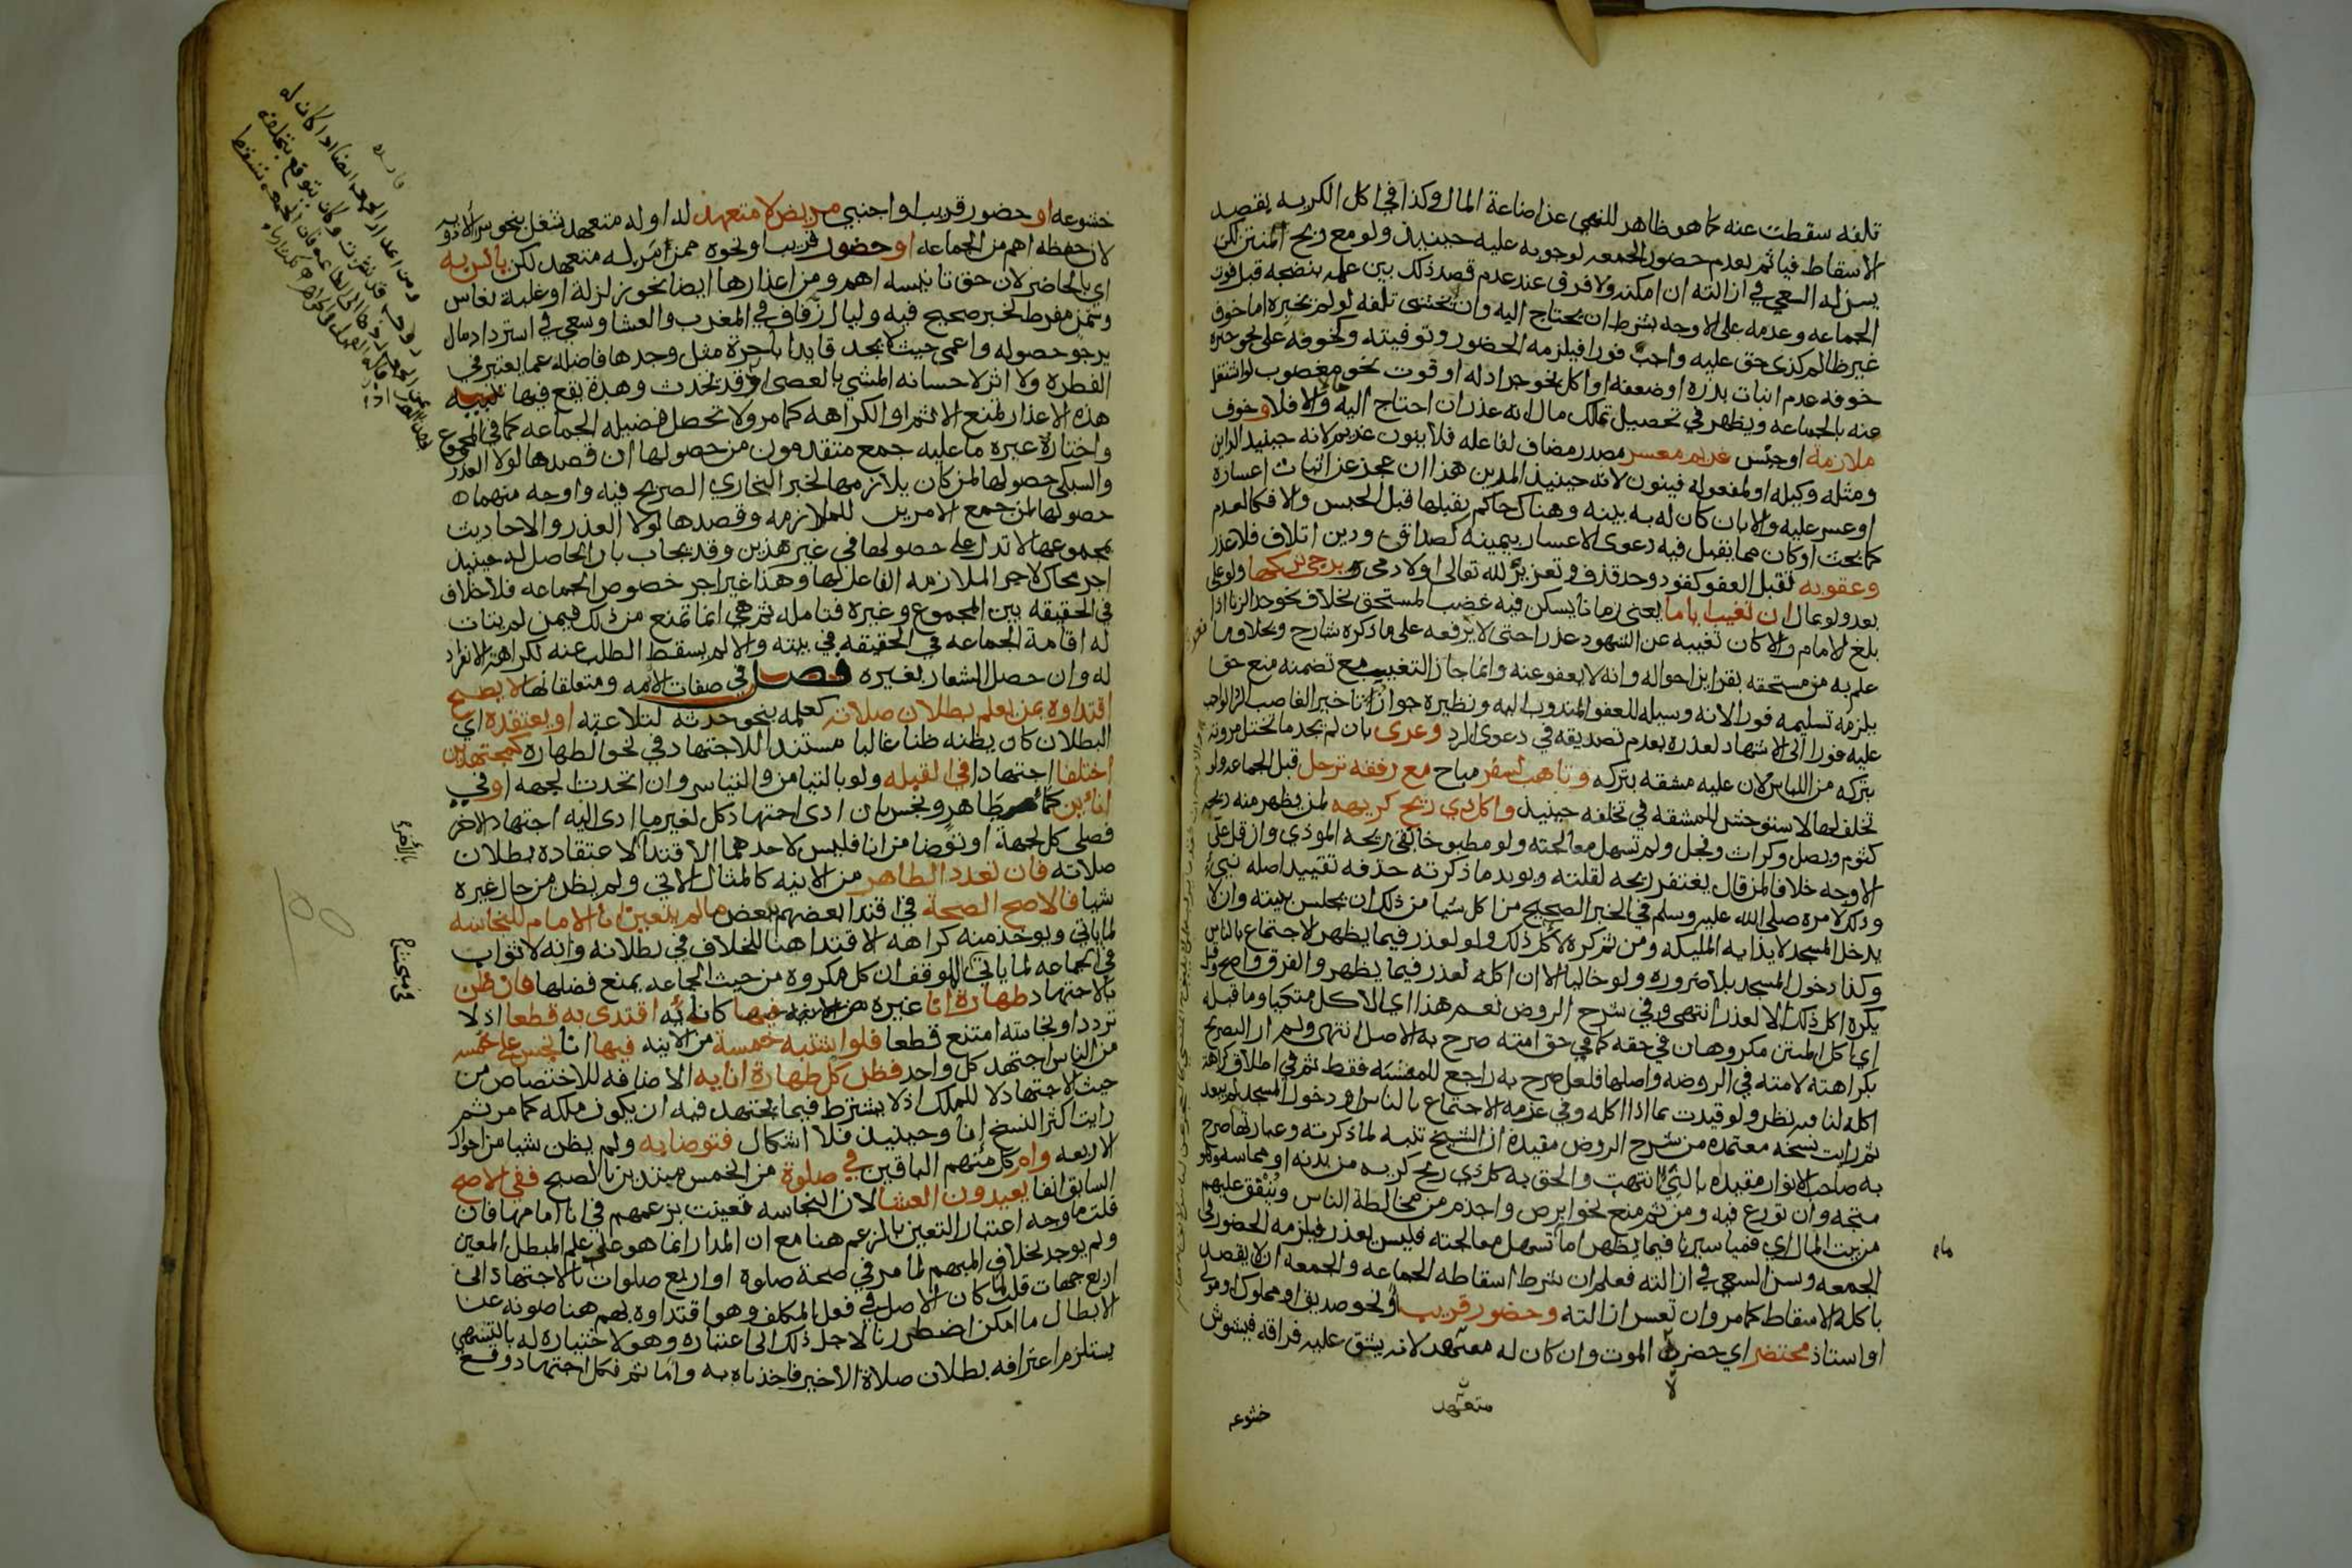 تلفه سقطت عنه كما هو ظاهر للنهي عن اضاعة المال وكذا في اكل الكريه بقصد
الاسقاط فياثم بعدم حضور الجمعه لوجوبه عليه حينيذ ولو مع ريح المنتن لكن
يسن له السعي في ازالته ان امكنه ولا فرق عند عدم قصد ذلك بين علمه بنضجه قبل فوت
الجماعه وعدمه على الاوجه بشرط ان يحتاج اليه وان يخشى تلفه لو لم يخبزه اما خوف
غير ظالم كذي حق عليه واجب فورا فيلزمه الحضور وتوفيته وكخوفه على نحو خبزه
خوفه عدم انبات بذره او ضعفه او اكل نحو جراد له او فوت نحو مغصوب لو اشتغل
عنه بالجماعه ويظهر في تحصيل تملك مال انه عذر ان احتاج اليه والا فلا وخوف
ملازمة او حبس غريم معسر مصدر مضاف لفاعله فلا ينون غريم لانه حينيذ الداين
ومثله وكيله او لمفعوله فينون لانه حينيذ المدين هذا ان عجز عن اثبات اعساره
او عسر عليه والا بان كان له به بينه وهناك حاكم يقبلها قبل الحبس والا فكالعدم
كما بحث او كان مما يقبل فيه دعوى الاعسار بيمينه كصداق ودين اتلاف فلا عذر
وعقوبه تقبل العفو كقود وحد قذف وتعزير لله تعالى او لادمي يرجى تركها ولو على
بعد ولو بمال ان تغيب اياما يعني زمانا يسكن فيه غضب المستحق بخلاف نحو حد الزنا اذا
بلغ الامام والا كان تغيبه عن الشهود عذرا حتى لا يرفعه على ما ذكره شارح وبخلاف ما
علم به من مستحقه بقراين احواله وانه لا يعفو عنه وانما جاز التغيب مع تضمنه منع حق
يلزمه تسليمه فورا لانه وسيله للعفو المندوب اليه ونظيره جواز تاخير الغاصب الرد الواجب
عليه فورا الى الاشهاد لعذره بعدم تصديقه في دعوى الرد وعرى بان لم يجد ما تختل مروته
بتركه من اللباس لان عليه مشقه بتركه وتاهب لسفر مباح مع رفقه ترحل قبل الجماعه ولو
تخلف لها لاستوحش للمشقه في تخلفه حينيذ واكل ذي ريح كريهه لمن يظهر منه ريحه
كثوم وبصل وكراث وفجل ولم تسهل معالجته ولو مطبوخا بقي ريحه الموذي وان قل على
الاوجه خلافا لمن قال يغتفر ريحه لقلته ويويد ما ذكرته حذفه تقييد اصله بنيء
وذلك لامره صلى الله عليه وسلم في الخبر الصحيح من اكل شيا من ذلك ان يجلس ببيته وان لا
يدخل المسجد لايذايه المليكه ومن ثم كره لاكل ذلك ولو لعذر فيما يظهر الاجتماع بالناس
وكذا دخول المسجد بلا ضروره ولو خاليا الا ان اكله لعذر فيما يظهر والفرق واضح وقول
يكره اكل ذلك الا لعذر انتهى وفي شرح الروض نعم هذا اي الاكل متكيا وما قبله
اي اكل المنتن مكروهان في حقه كما في حق امته صرح به الاصل انتهى ولم ار التصريح
بكراهته لامته في الروضه واصلها فلعل صرح به راجع للمشبه فقط ثم في اطلاق كراهة
اكله لنا نظر ولو قيدت بما اذا اكله وفي عزمه الاجتماع بالناس او دخول المسجد لم يبعد
ثم رايت نسخه معتمده من شرح الروض مقيده ان الشيخ تنبه لما ذكرته وعبارتها صرح
به صاحب الانوار مقيده بالنيء انتهت والحق به كل ذي ريح كريه من بدنه او مماسه وهو
متجه وان نوزع فيه ومن ثم منع نحو ابرص واجذم من مخالطة الناس وينفق عليهم
من بيت المال اي فمياسيرنا فيما يظهر اما تسهل معالجته فليس بعذر فيلزمه الحضور في
الجمعه ويسن السعي في ازالته فعلم ان شرط اسقاطه الجماعه والجمعه ان لا يقصد
باكله الاسقاط كما مر وان تعسر ازالته وحضور قريب او نحو صديق او مملوك او مولى
او استاذ محتضر اي حضره الموت وان كان له متعهد لانه يشق عليه فراقه فيشوش
ماء
متعهد
خشوعه
خشوعه او حضور قريب او اجنبي مريض لا متعهد له او له متعهد شغل بنحو شرا الادويه
لان حفظه اهم من الجماعه او حضور قريب او نحوه ممن مر له متعهد لكن يانس به
اي بالحاضر لان حق تانيسه اهم ومن اعذارها ايضا نحو زلزلة او غلبة نعاس
وسمن مفرط لخبر صحيح فيه وليال زفاف في المغرب والعشا وسعي في استرداد مال
يرجو حصوله واعمى حيث لا يجد قايدا باجرة مثل وجدها فاضله عما يعتبر في
الفطره ولا اثر لاحسانه المشي بالعصى اذ قد تحدث وهدة يقع فيها تنبيه
هذه الاعذار تمنع الاثم او الكراهه كما مر ولا تحصل فضيله الجماعه كما في المجموع
واختار غيره ما عليه جمع متقدمون من حصولها ان قصدها لولا العذر
والسبكي حصولها لمن كان يلازمها لخبر البخاري الصريح فيه واوجه منهما
حصولها لمن جمع الامرين للملازمه وقصدها لولا العذر والاحاديث
بمجموعها لا تدل على حصولها في غير هذين وقد يجاب بان الحاصل له حينيذ
اجر محاك لاجر الملازمه الفاعل لها وهذا غير اجر خصوص الجماعه فلا خلاف
في الحقيقه بين المجموع وغيره فتامله ثم هي انما تمنع من ذلك فيمن لم يتات
له اقامة الجماعه في بيته والا لم يسقط الطلب عنه لكراهة الانفراد
له وان حصل الشعار بغيره فصل في صفات الايمه ومتعلقاتها لا يصح
اقتداوه بمن يعلم بطلان صلاته كعلمه بنحو حدثه لتلاعبه او يعتقده اي
البطلان كان يظنه ظنا غالبا مستندا للاجتهاد في نحو الطهاره كمجتهدين
اختلفا اجتهادا في القبله ولو بالتيامن والتياسر وان اتحدت الجهه او في
انائين كماء طاهر ونجس بان ادى اجتهاد كل لغير ما ادى اليه اجتهاد الاخر
فصلى كل لجهة او توضا من انا فليس لاحدهما الاقتدا لاعتقاده بطلان
صلاته فان تعدد الطاهر من الانيه كالمثال الاتي ولم يظن من حال غيره
شيا فالاصح الصحة في اقتدا بعضهم ببعض ما لم يتعين انا الامام للنجاسه
لما ياتي ويوخذ منه كراهه الاقتدا هنا للخلاف في بطلانه وانه لا ثواب
في الجماعه لما ياتي في الموقف ان كل مكروه من حيث الجماعه يمنع فضلها فان ظن
بالاجتهاد طهارة انا غيره كانائه اقتدى به قطعا اذ لا
تردد او نجاسته امتنع قطعا فلو اشتبه خمسة من الانيه فيها انا نجس على خمسه
من الناس اجتهد كل واحد فظن كل طهارة انايه الاضافه للاختصاص من
حيث الاجتهاد لا للملك اذ لا يشترط فيما يجتهد فيه ان يكون ملكه كما مر ثم
رايت اكثر النسخ انا وحينيذ فلا اشكال فتوضا به ولم يظن شيا من احوال
الاربعه وام كل منهم الباقين في صلوة من الخمس مبتدين بالصبح ففي الاصح
السابق انفا يعيدون العشا لان النجاسه تعينت بزعمهم في انا امامها فان
قلت ما وجه اعتبار التعين بالزعم هنا مع ان المدار انما هو على علم المبطل المعين
ولم يوجد بخلاف المبهم لما مر في صحة صلوة او اربع صلوات بالاجتهاد الى
اربع جهات قلت لما كان الاصل في فعل المكلف وهو اقتداوه بهم هنا صونه عن
الابطال ما امكن اضطررنا لاجل ذلك الى اعتباره وهو لاختياره له بالتشهي
يستلزم اعترافه ببطلان صلاة الاخير فاخذناه به واما ثم فكل اجتهاد وقع